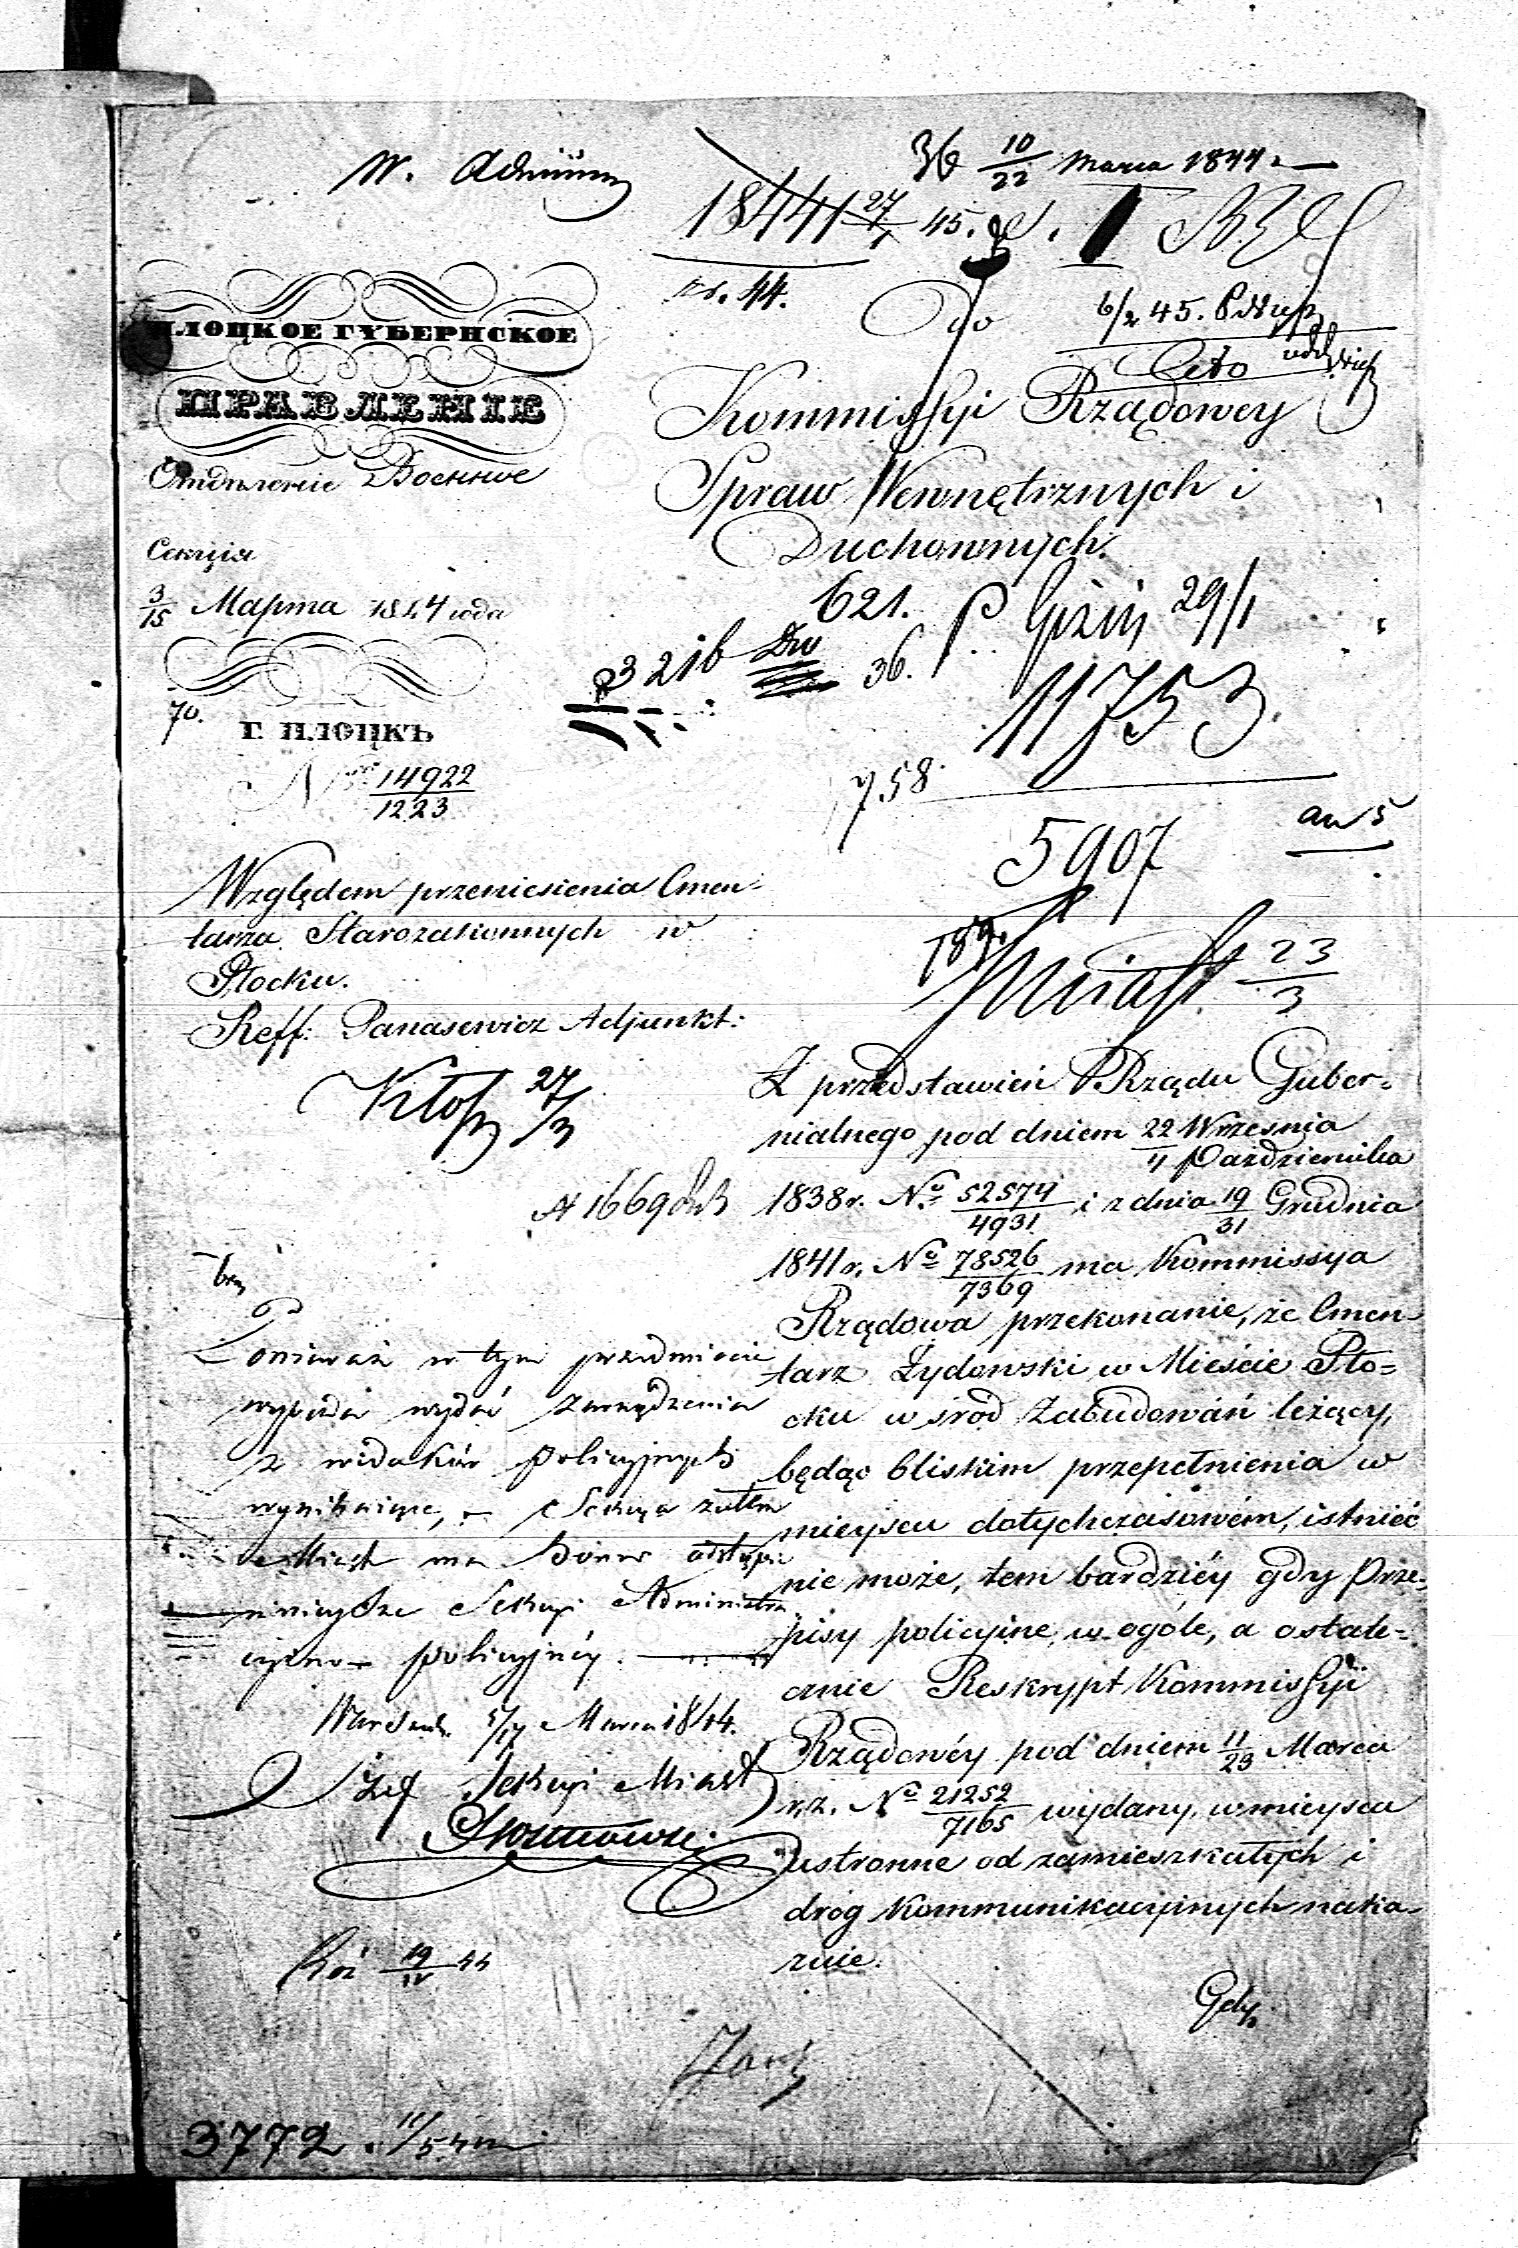 W. Admin
36 10/22 Marca 1844.
1844 27/1 45.
nr. 44.
Do
6/2 45.
Cito
ПЛОЦКОЕ ГУБЕРНСКОЕ
ПРАВЛЕНІЕ
Отдѣленіе Военное
Секція
3/15 Марта 1844 года
70.
Г. ПЛОЦКЪ
Nro 14922/1223
Kommissyi Rządowey
Spraw Wewnętrznych i
Duchownych.
621.
29/1
3216
36.
11753.
758.
5907
Miast. 23/3
Względem przeniesienia Cmen-
tarza Starozakonnych w
Płocku.
Reff: Panasewicz Adjunkt:
27/3
N 1669
Z przedstawień Rządu Guber-
nialnego pod dniem 22 Września / 4 Października
1838 r. No 52574/4931 i z dnia 19/31 Grudnia
1841 r. No 78526/7369 ma Kommissya
Rządowa przekonanie, że Cmen-
tarz Żydowski w Mieście Pło-
cku wśród Zabudowań leżący,
będąc bliskim przepełnienia w
mieyscu dotychczasowém, istnieć
nie może, tem bardziéy gdy Prze-
pisy policyine w ogóle, a ostate-
cznie Reskrypt Kommissyi
Rządowéy pod dniem 11/23 Marca
r. z. No 21252/7165 wydany, w mieysca
ustronne od zamieszkałych i
dróg kommunikacyinych naka-
zuie.
Gdy
Ponieważ w tym przedmiocie
wypada wydać zarządzenia
z widoków policyjnych
wynikające, Sekcya zatém
Miast ma honor odstąpić
niniejsze Sekcyi Administra-
cyjno-policyjnéj.
Warszawa 5/17 Marca 1844.
Szef Sekcyi Miast
19/IV 44
3772.